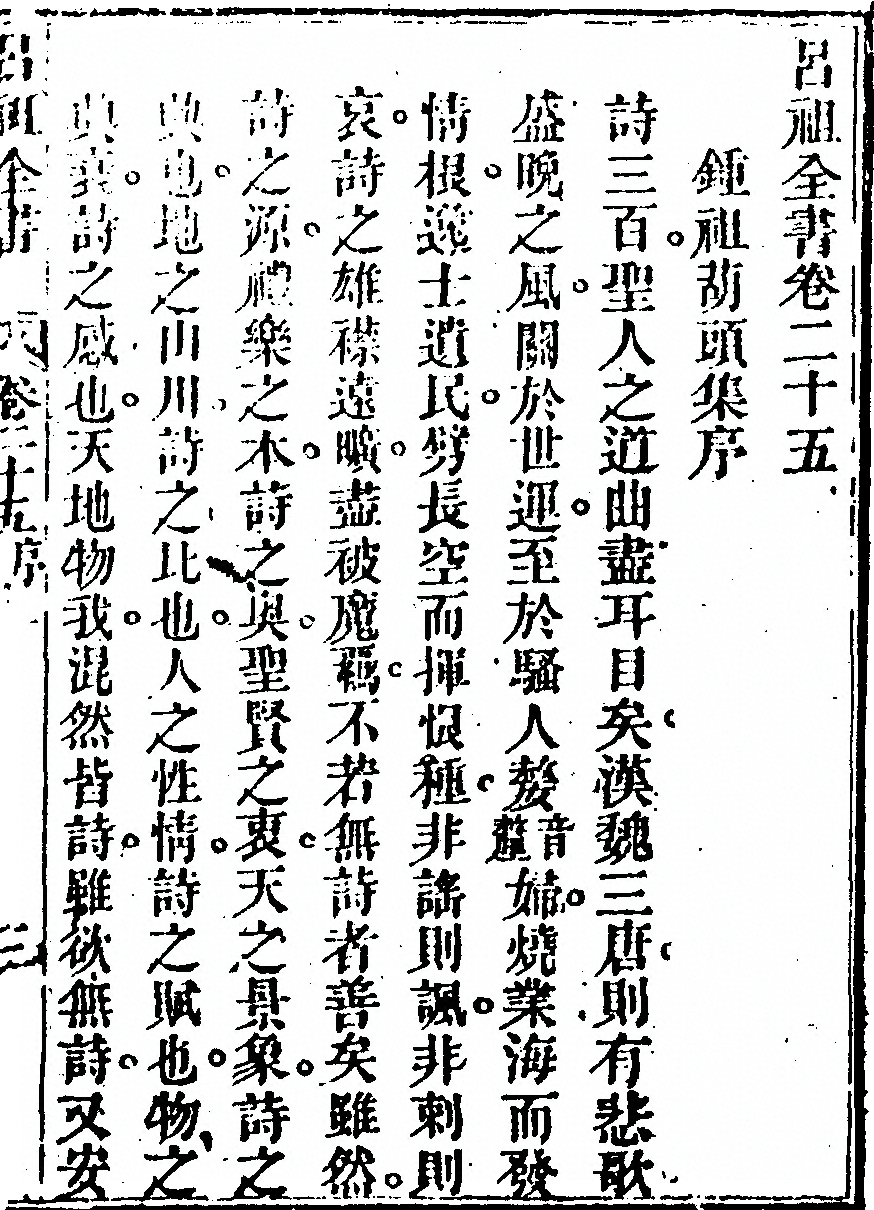 呂祖全書卷二十五
鍾祖葫頭集序
詩三百。聖人之道曲盡耳目矣。漢魏三唐。則有悲歌
盛晚之風。關於世運。至於騷人嫠音釐婦。燒業海而發
情根。逸士遺民。劈長空而揮恨種。非謠則諷。非刺則
哀。詩之雄襟遠曠。盡被魔羈。不若無詩者善矣。雖然。
詩之源。禮樂之本。詩之奧。聖賢之衷。天之景象。詩之
興也。地之山川。詩之比也。人之性情。詩之賦也。物之
興衰。詩之感也。天地物我。混然皆詩。雖欲無詩。又安
呂祖全書 卷二十五序 三